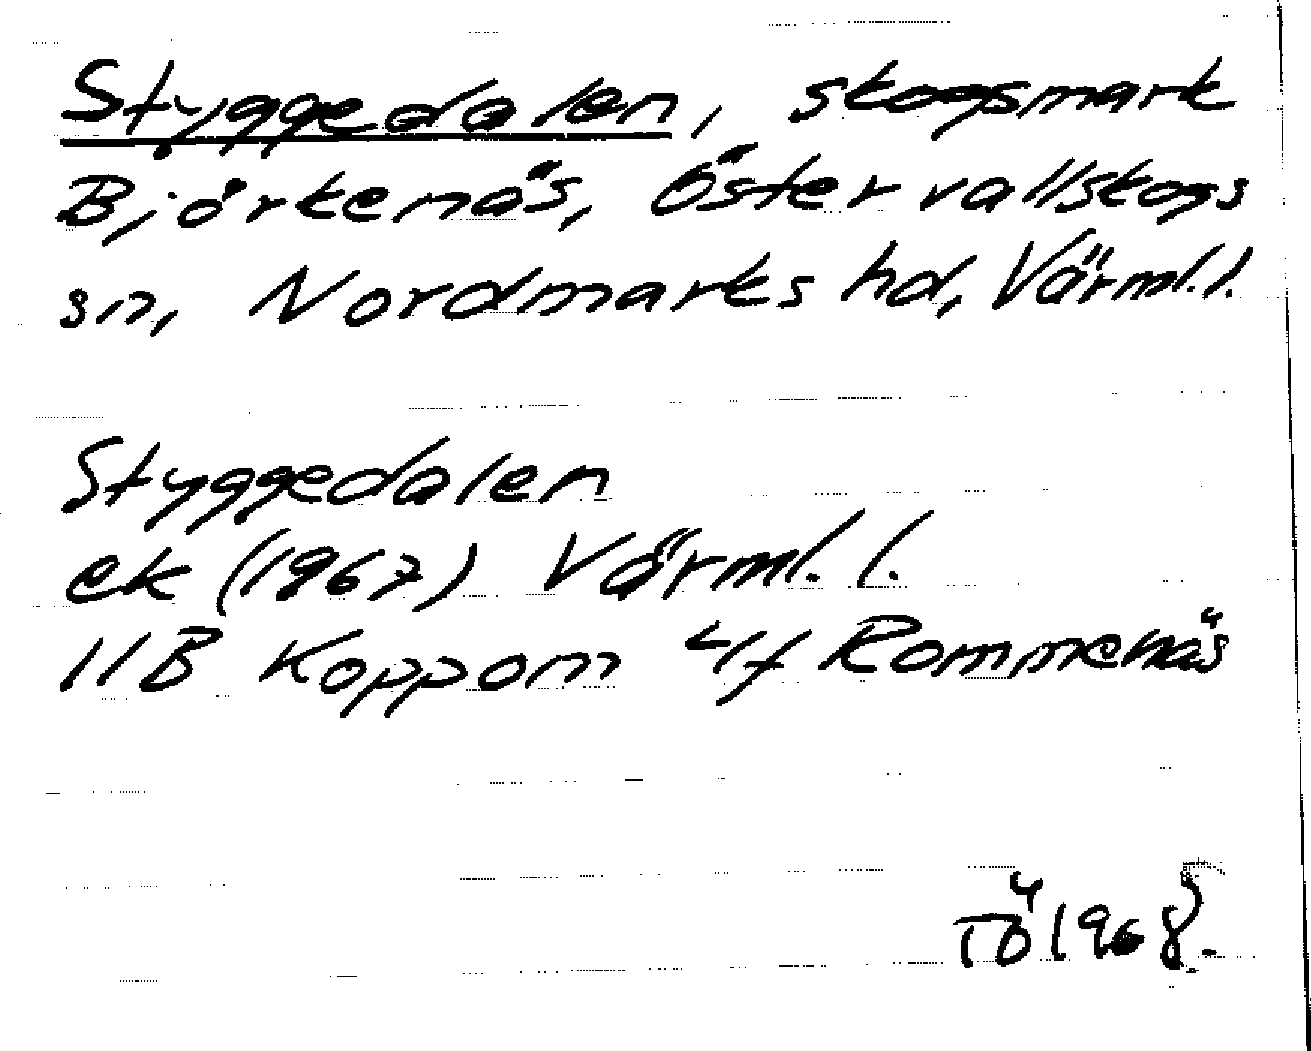 Styggedalen, skogsmark
Björkenäs, Östervallskogs
sn, Nordmarks hd, Värml. l.
Styggedalen
ek (1967) Värml. l.
11B Koppom 4f Rommenäs
TÖ 1968.